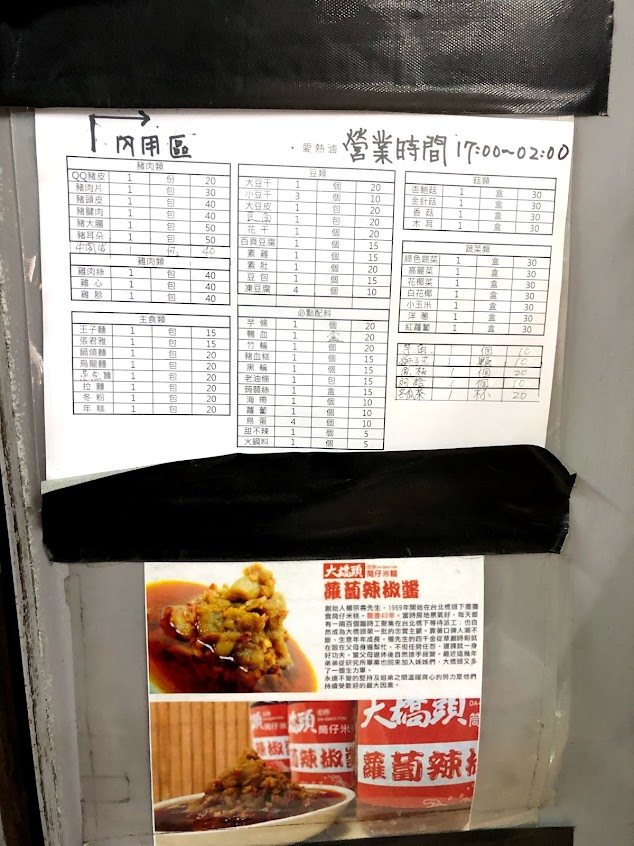 內用區
愛熱滷 營業時間 17:00~02:00
豬肉類
QQ豬皮 1 份 20
豬肉片 1 包 30
豬頭皮 1 包 40
豬腱肉 1 包 40
豬大腸 1 包 50
豬耳朵 1 包 50
1 40
雞肉類
雞肉絲 1 包 40
雞心 1 包 40
雞胗 1 包 40
主食類
王子麵 1 包 15
張君雅 1 包 15
鍋燒麵 1 包 20
烏龍麵 1 包 20
麵 1 包 20
拉麵 1 包 20
冬粉 1 包 20
年糕 1 包 20
豆類
大豆干 1 個 20
小豆干 3 個 10
大豆皮 1 包 20
1 包 20
花干 1 個 20
百頁豆腐 1 個 15
素雞 1 個 15
素肚 1 個 20
豆包 1 個 15
凍豆腐 4 個 10
必點配料
芋條 1 個 20
鴨血 1 盒 20
竹輪 1 個 20
豬血糕 1 個 15
黑輪 1 個 15
老油條 1 包 15
蒟蒻絲 1 盒 15
海帶 1 個 10
蘿蔔 1 個 10
鳥蛋 4 個 10
甜不辣 1 個 5
火鍋料 1 個 5
菇類
杏鮑菇 1 盒 30
金針菇 1 盒 30
香菇 1 盒 30
木耳 1 盒 30
蔬菜類
綠色蔬菜 1 盒 30
高麗菜 1 盒 30
花椰菜 1 盒 30
白花椰 1 盒 30
小玉米 1 盒 30
洋蔥 1 盒 30
紅蘿蔔 1 盒 30
1 個 10
1 10
1 個 20
1 個 10
1 杯 20
大橋頭 筒仔米糕
蘿蔔辣椒醬
創始人楊宗霖先生，1969年開始在台北橋頭下擺攤
賣筒仔米糕。飄香40年。當時房地景氣好，每天都
有一兩百個臨時工聚集在台北橋下等待派工；也自
然成為大橋頭第一批的忠實主顧。靠著口碑人潮不
斷，生意年年成長。楊先生的四千金從草創時期就
在跟在父母身邊幫忙，不但任勞任怨，還練就一身
好功夫。當父母退休後自然接手經營。最近這幾年
弟弟從研究所畢業也回來加入姊姊們，大橋頭又多
了一個生力軍。
永遠不變的堅持及姐弟之間溫暖齊心的努力是他們
持續受歡迎的最大因素。
大橋頭 筒
蘿蔔辣椒